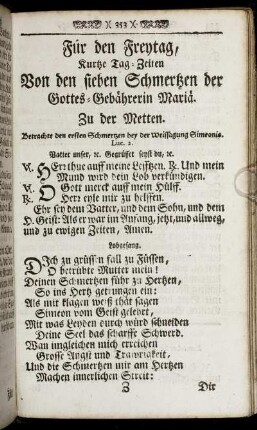 )( 353 )(
Für den Freytag,
Kurtze Tag-Zeiten
Von den sieben Schmertzen der
Gottes-Gebährerin Mariä.
Zu der Metten.
Betrachte den ersten Schmertzen bey der Weissagung Simeonis.
Luc. 2.
Vatter unser, ꝛc. Gegrüsset seyst du, ꝛc.
V. HErr thue auff meine Lefftzen. R. Und mein
Mund wird dein Lob verkündigen.
V. O Gott merck auff mein Hülff.
R. HErr eyle mir zu helffen.
Ehr sey dem Vatter, und dem Sohn, und dem
H. Geist: Als er war im Anfang, jetzt, und allweg,
und zu ewigen Zeiten, Amen.
Lobgesang.
DIch zu grüss'n fall zu Füssen,
O betrübte Mutter mein!
Deinen Schmertzen führ zu Hertzen,
So ins Hertz getrungen ein:
Als mir klagen weiß thät sagen
Simeon vom Geist gelehrt,
Mit was Leyden durch würd schneiden
Deine Seel das scharffe Schwerd.
Wan ungleichen mich erreichen
Grosse Angst und Traurigkeit,
Und die Schmertzen mir am Hertzen
Machen innerlichen Streit:
Z Dir